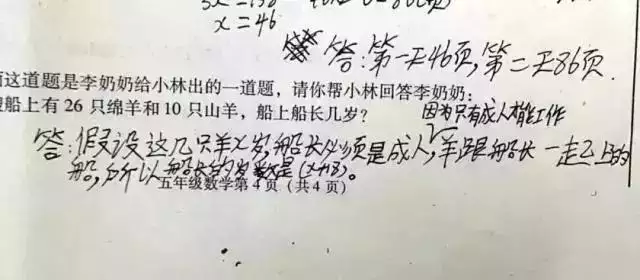 x=46
答:第一天46页,第二天86页.
这道题是李奶奶给小林出的一道题,请你帮小林回答李奶奶:
船上有26只绵羊和10只山羊,船上船长几岁?
因为只有成人才能工作
答:假设这几只羊x岁,船长必须是成人,羊跟船长一起上的
船,所以船长的岁数是(x+18)。
五年级数学第4页(共4页)